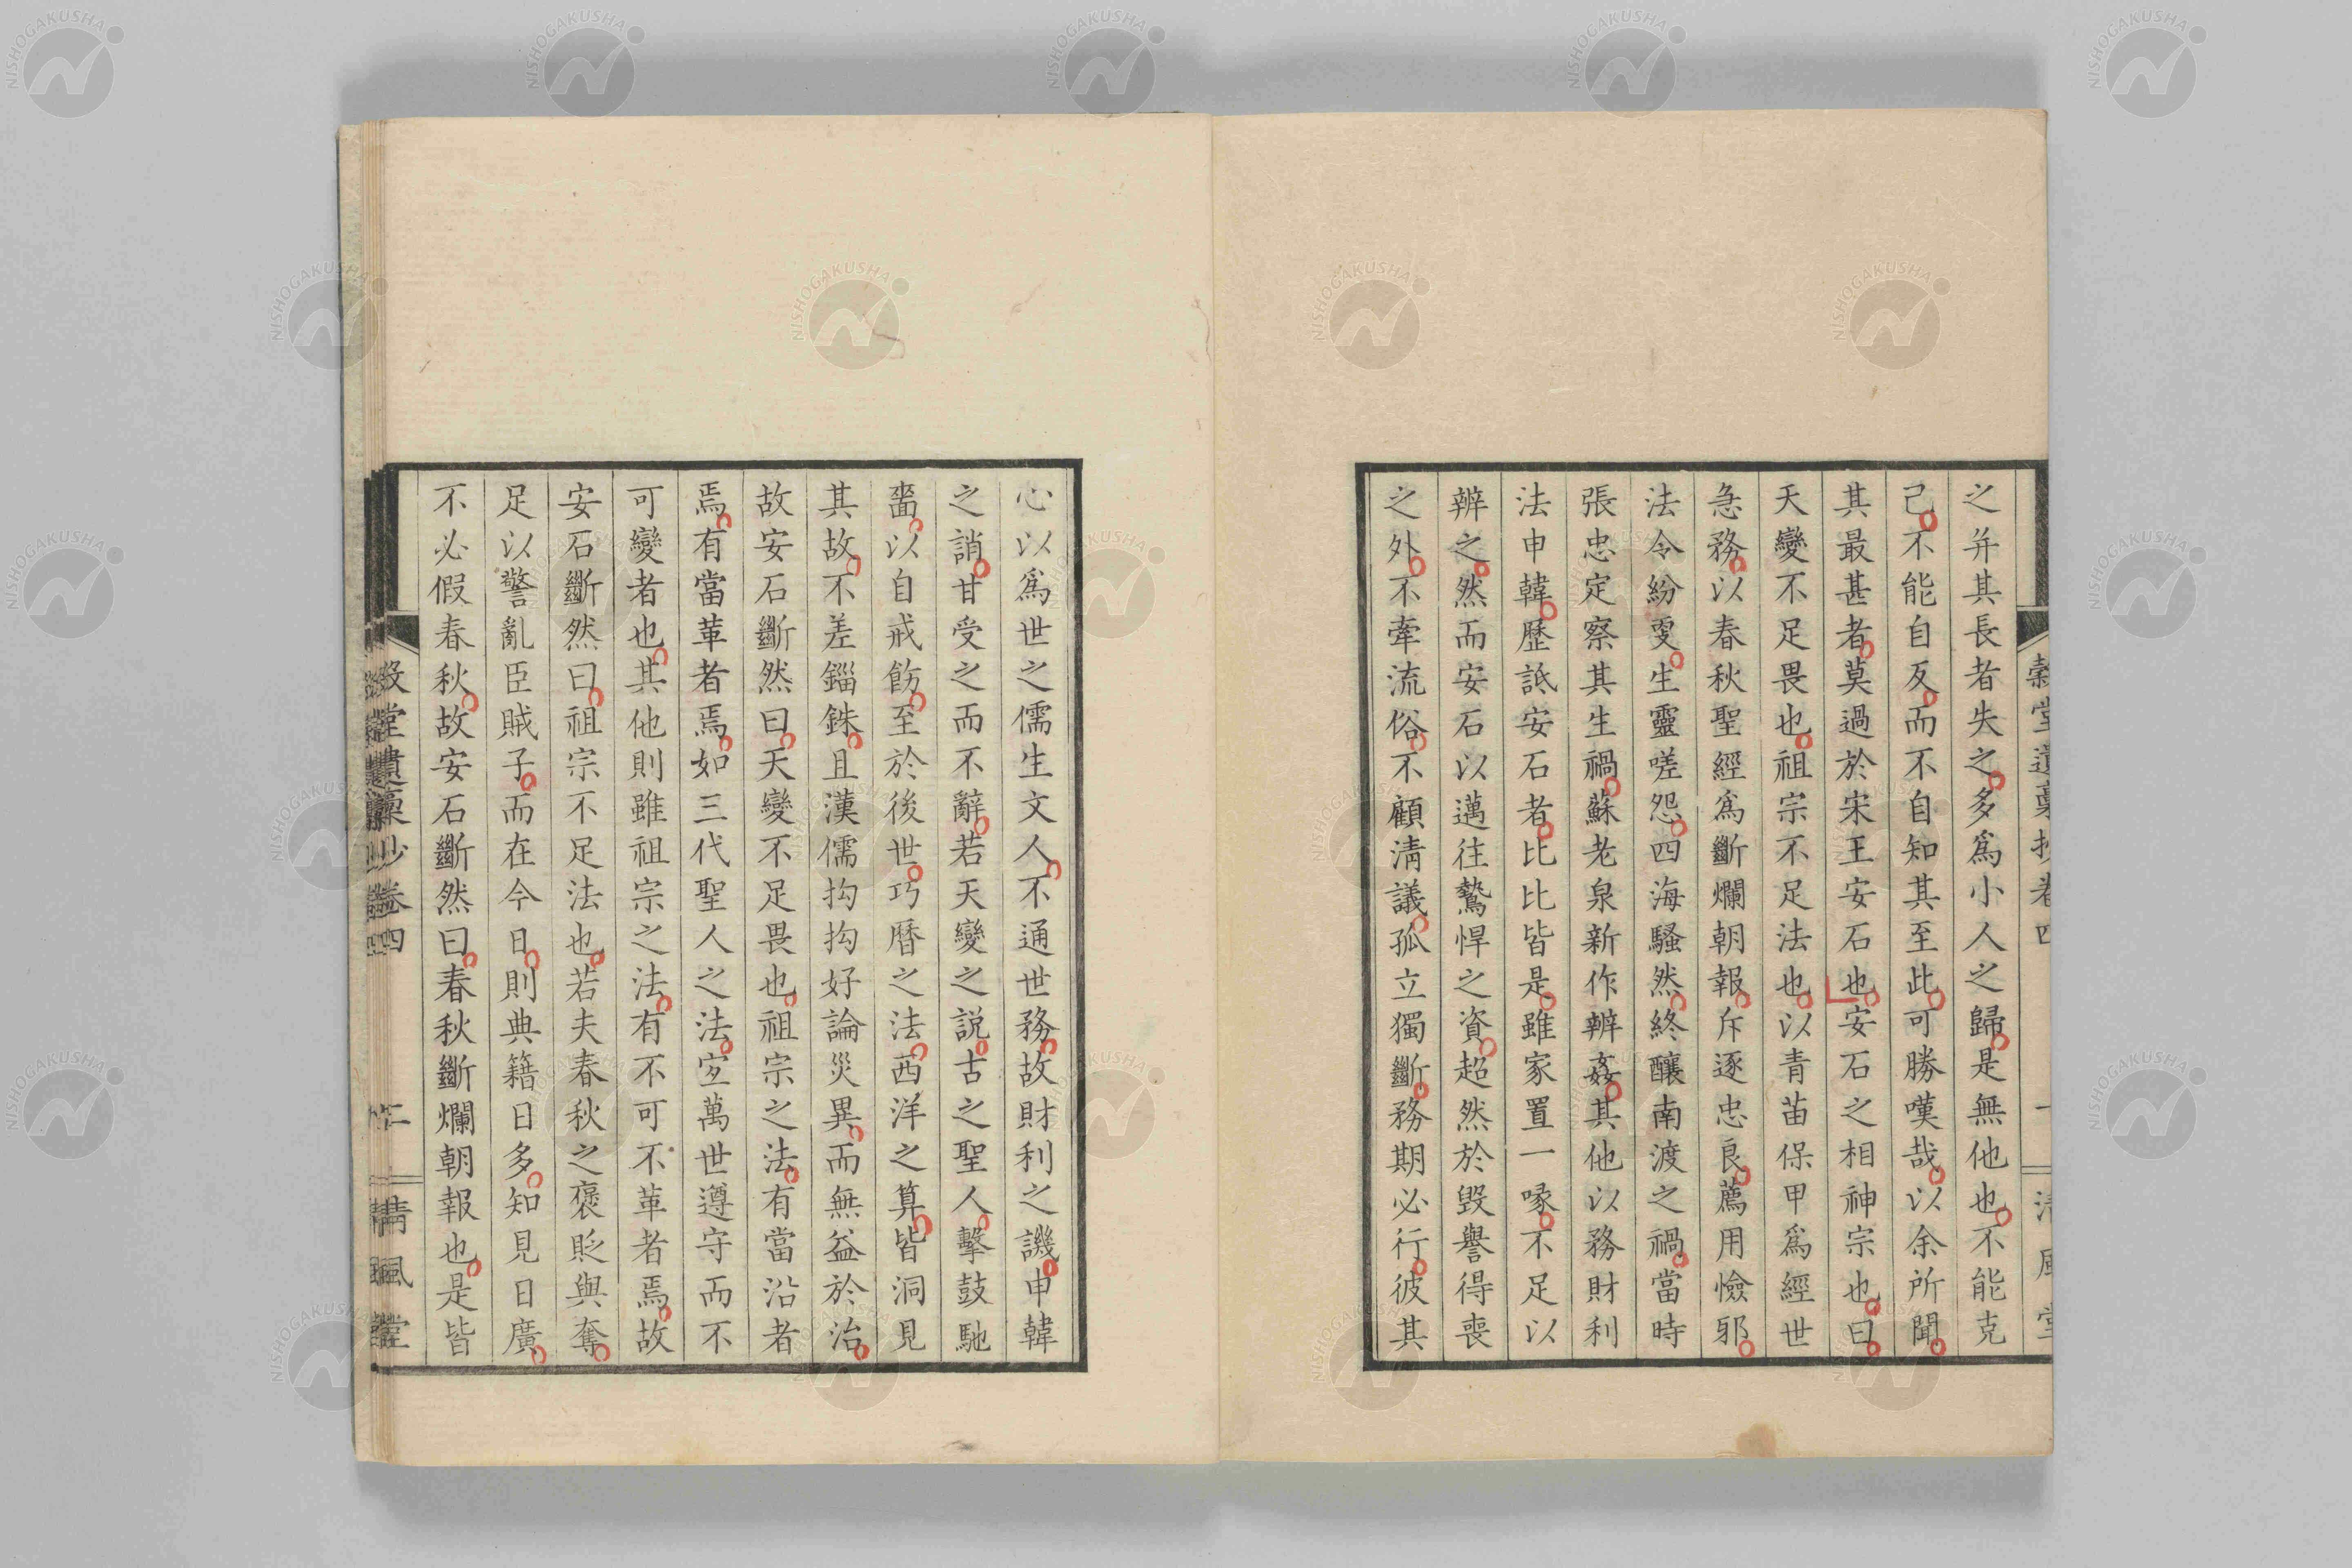 之并其長者失之多爲小人之歸是無他也不能克
己不能自反而不自知其至此可勝嘆哉以余所聞
其最甚者莫過於宋王安石也安石之相神宗也曰
天變不足畏也祖宗不足法也以青苗保甲爲經世
急務以春秋聖經爲斷爛朝報斥逐忠良薦用憸邪
法令紛更生靈嗟怨四海騷然終釀南渡之禍當時
張忠定察其生禍蘇老泉新作辨姦其他以務財利
法申韓歷詆安石者比比皆是雖家置一喙不足以
辨之然而安石以邁往鷙悍之資超然於毀譽得喪
之外不牽流俗不顧淸議孤立獨斷務期必行彼其
心以爲世之儒生文人不通世務故財利之譏申韓
之誚甘受之而不辭若天變之説古之聖人擊鼓馳
嗇以自戒飭至於後世巧曆之法西洋之算皆洞見
其故不差錙銖且漢儒拘拘好論災異而無益於治
故安石斷然曰天變不足畏也祖宗之法有當沿者
焉有當革者焉如三代聖人之法宜萬世遵守而不
可變者也其他則雖祖宗之法有不可不革者焉故
安石斷然曰祖宗不足法也若夫春秋之褒貶與奪
足以警亂臣賊子而在今日則典籍日多知見日廣
不必假春秋故安石斷然曰春秋斷爛朝報也是皆